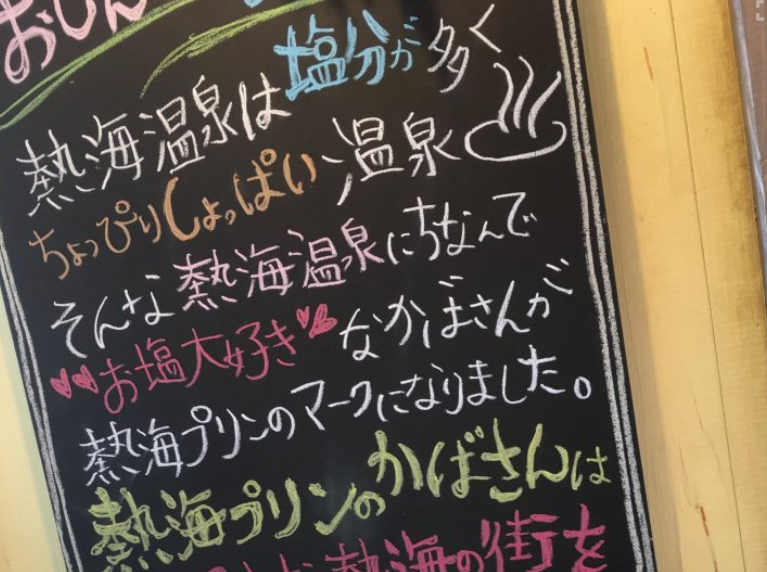 おしん
熱海温泉は塩分が多く
ちょっぴりしょっぱい温泉♨
そんな熱海温泉にちなんで
♥♥お塩大好き♥♥なかばさんが
熱海プリンのマークになりました。
熱海プリンのかばさんは
熱海の街を